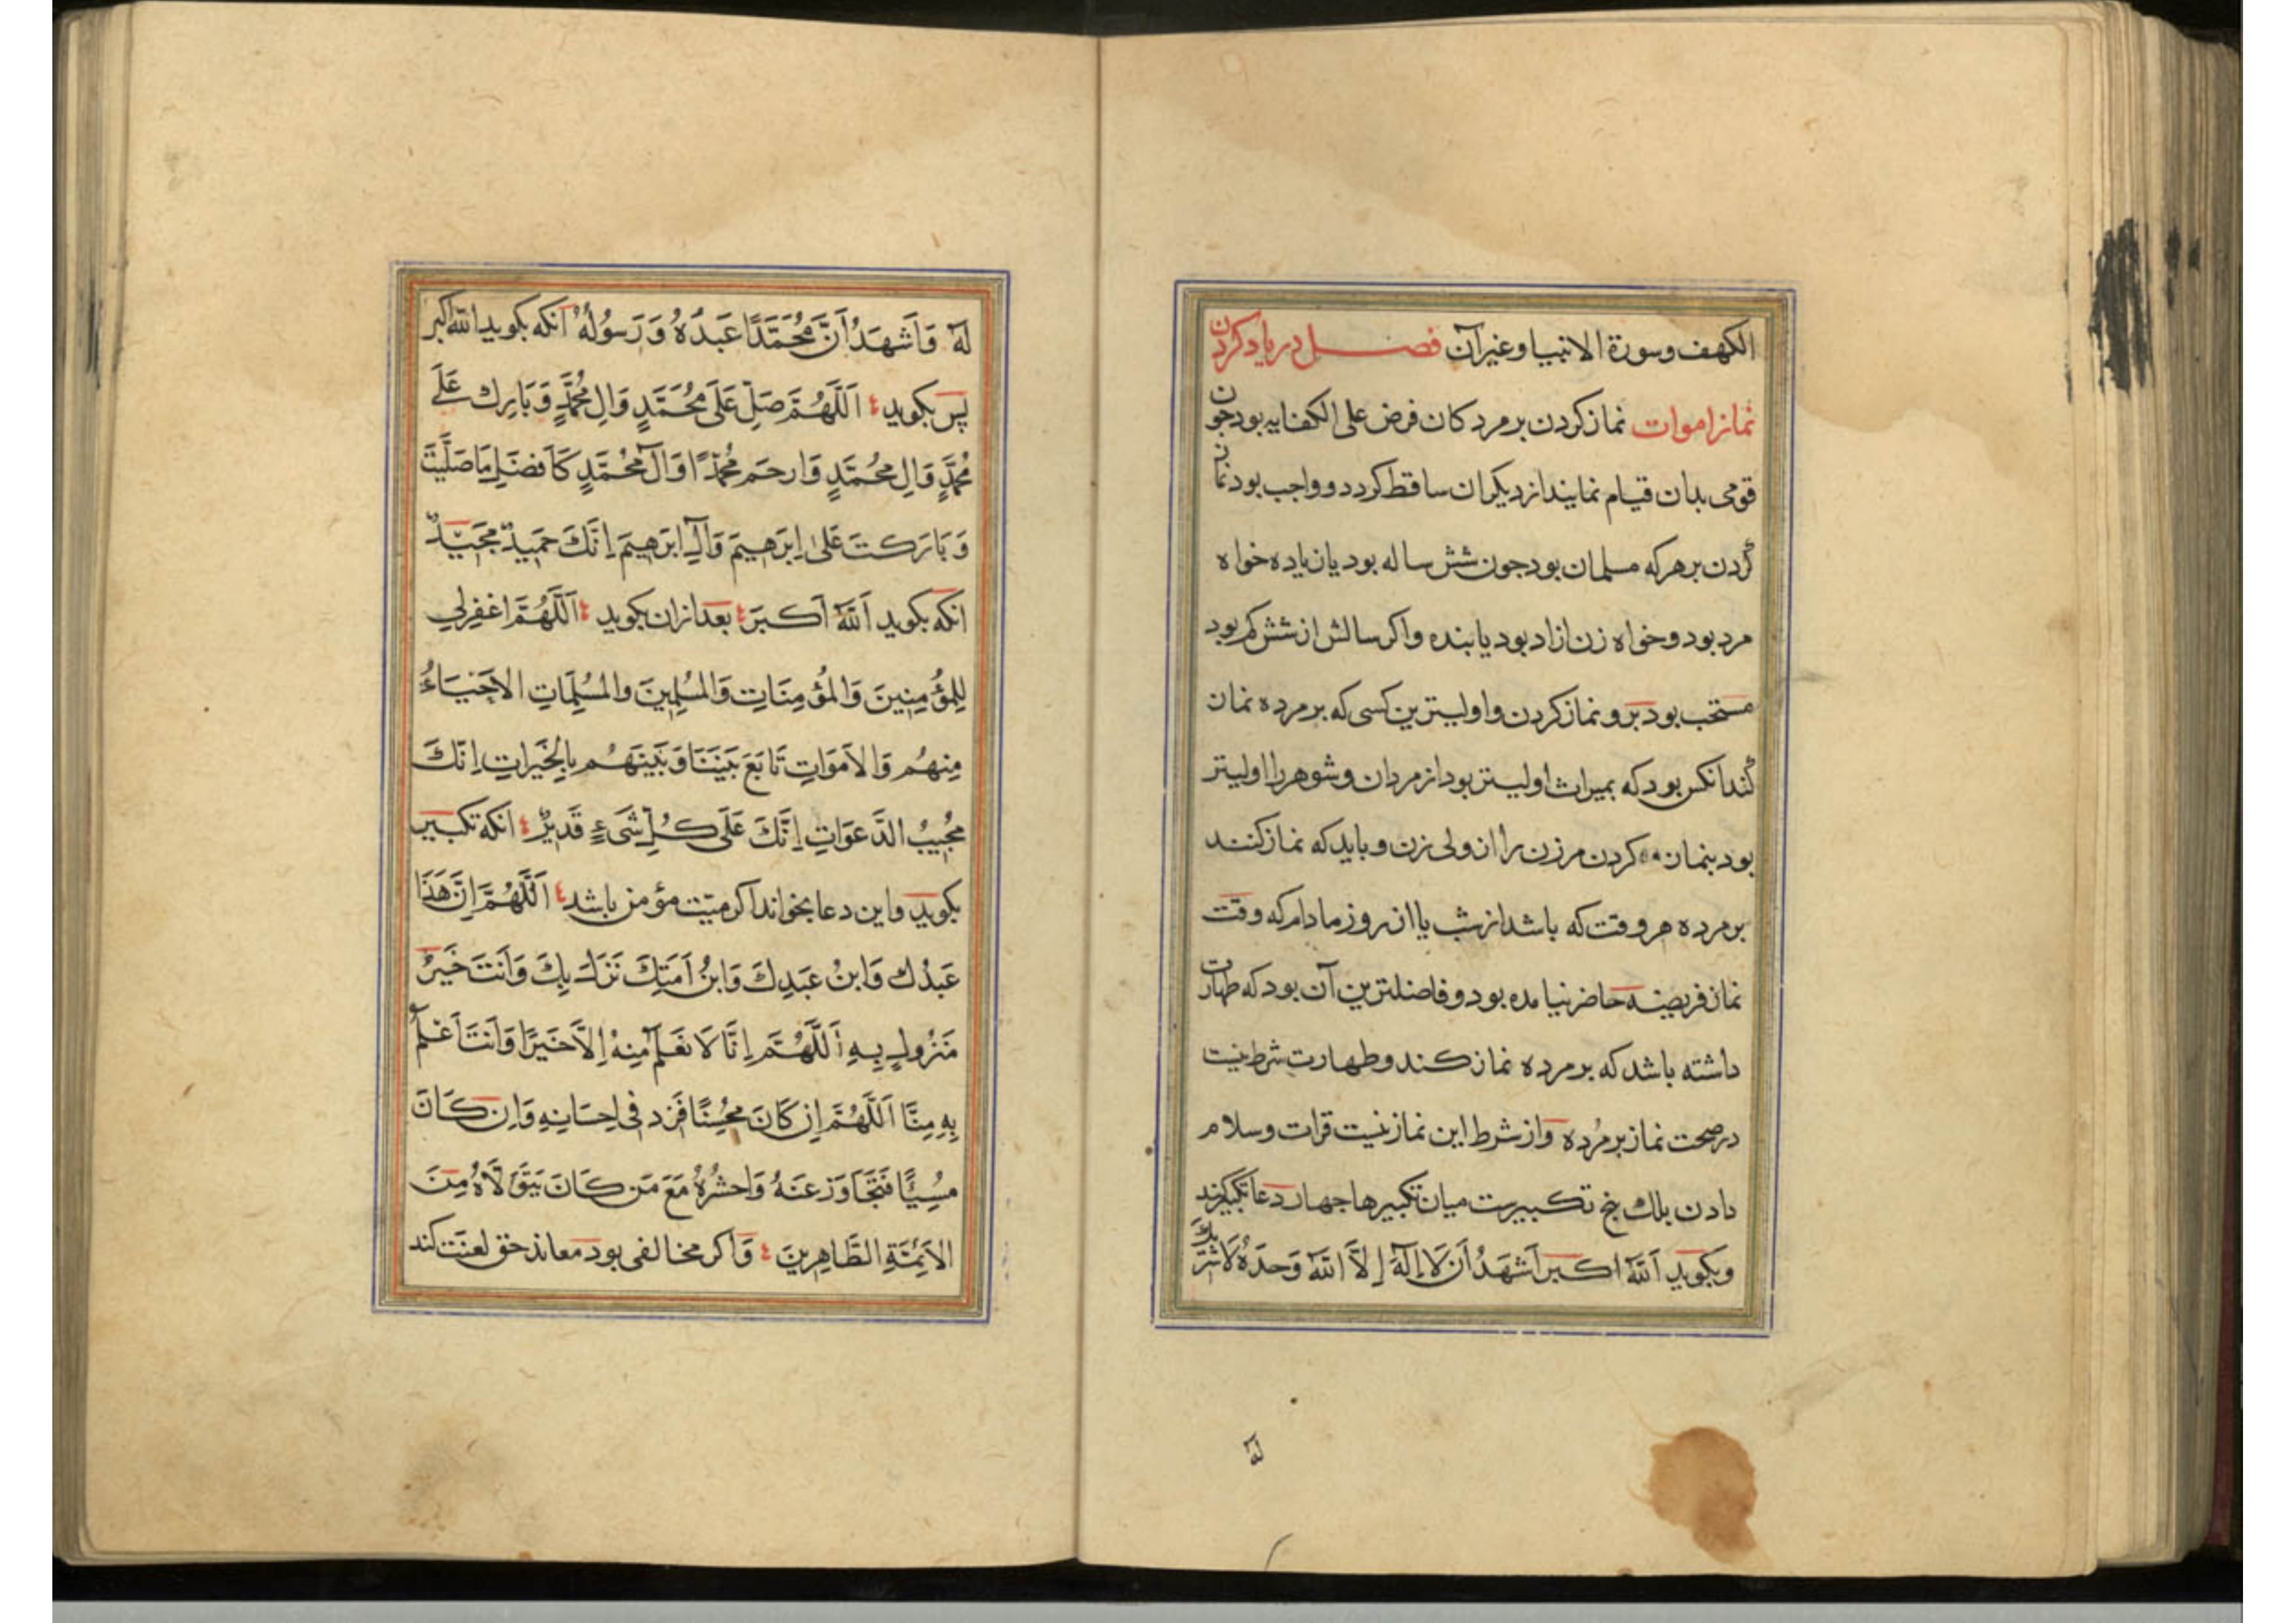 الكهف وسورة الانبيا وغير آن فصل در ياد كردن
نماز اموات نماز كردن بر مردكان فرض على الكفايه بود جون
قومى بدان قيام نمايند از ديكران ساقط كردد و واجب بود نماز
كردن بر هر كه مسلمان بود جون شش ساله بود يا زياده خواه
مرد بود و خواه زن ازاد بود يا بنده و اكر سالش از شش كم بود
مستحب بود برو نماز كردن و اوليترين كسى كه بر مرده نماز
كند انكس بود كه بميراث اوليتر بود از مردان و شوهر را اوليتر
بود بنماز كردن مر زن را از ولى زن و بايد كه نماز كنند
بر مرده هر وقت كه باشد از شب يا از روز مادام كه وقت
نماز فريضه حاضر نيامده بود و فاضلترين آن بود كه طهارت
داشته باشد كه بر مرده نماز كند و طهارت شرط نيست
در صحت نماز بر مُرده و از شرط اين نماز نيست قرات و سلام
دادن بلك پنج تكبيرست ميان تكبيرها جهار دعا
وبكويد اَللّهُ اكبر اَشهَدُ اَن لَا اِلٰهَ اِلَّا اللّهُ وَحدَهُ لَا شَريكَ
لَهُ
لَهُ وَاَشهَدُ اَنَّ مُحَمَّدًا عَبدُهُ وَرَسُولُهُ انكه بكويد الله اكبر
پس بكويد اَللّٰهُمَّ صَلِّ عَلٰى مُحَمَّدٍ وَالِ مُحَمَّدٍ وَبَارِك عَلٰى
مُحَمَّدٍ وَالِ مُحَمَّدٍ وَارحَم مُحَمَّدًا وَالَ مُحَمَّدٍ كَاَفضَلِ مَا صَلَّيتَ
وَبَارَكتَ عَلٰى اِبرٰهِيمَ وَالِ اِبرٰهِيمَ اِنَّكَ حَمِيدٌ مَجِيدٌ
انكه بكويد اَللّهُ اَكبَر بعد ازان بكويد اَللّٰهُمَّ اغفِرلِي
لِلمُؤمِنِينَ وَالمُؤمِنَاتِ وَالمُسلِمِينَ والمُسلِمَاتِ الاَحيَاءُ
مِنهُم وَالاَموَاتِ تَابَعَ بَينَنَا وَبَينَهُم بِالخَيرَاتِ اِنَّكَ
مُجِيبُ الدَّعَوَاتِ اِنَّكَ عَلٰى كُلِّ شَىءٍ قَدِيرٌ انكه تكبير
بكويد و اين دعا بخواند اكر ميّت مؤمن باشد اَللّٰهُمَّ اِنَّ هَذَا
عَبدُكَ وَابنُ عَبدِكَ وَابنُ اَمَتِكَ نَزَلَ بِكَ وَاَنتَ خَيرُ
مَنزُولٍ بِهِ اَللّٰهُمَّ اِنَّا لَا نَعلَمُ مِنهُ اِلَّا خَيرًا وَاَنتَ اَعلَمُ
بِهِ مِنَّا اَللّٰهُمَّ اِن كَانَ مُحسِنًا فَزِد فى اِحسَانِهِ وَاِن كَانَ
مُسِيًّا فَتَجَاوَز عَنهُ وَاحشُرهُ مَعَ مَن كَانَ يَتَوَلَّاهُ مِنَ
الاَئِمَّةِ الطَّاهِرِينَ وَاكر مخالفى بود معاند حق لعنت كند